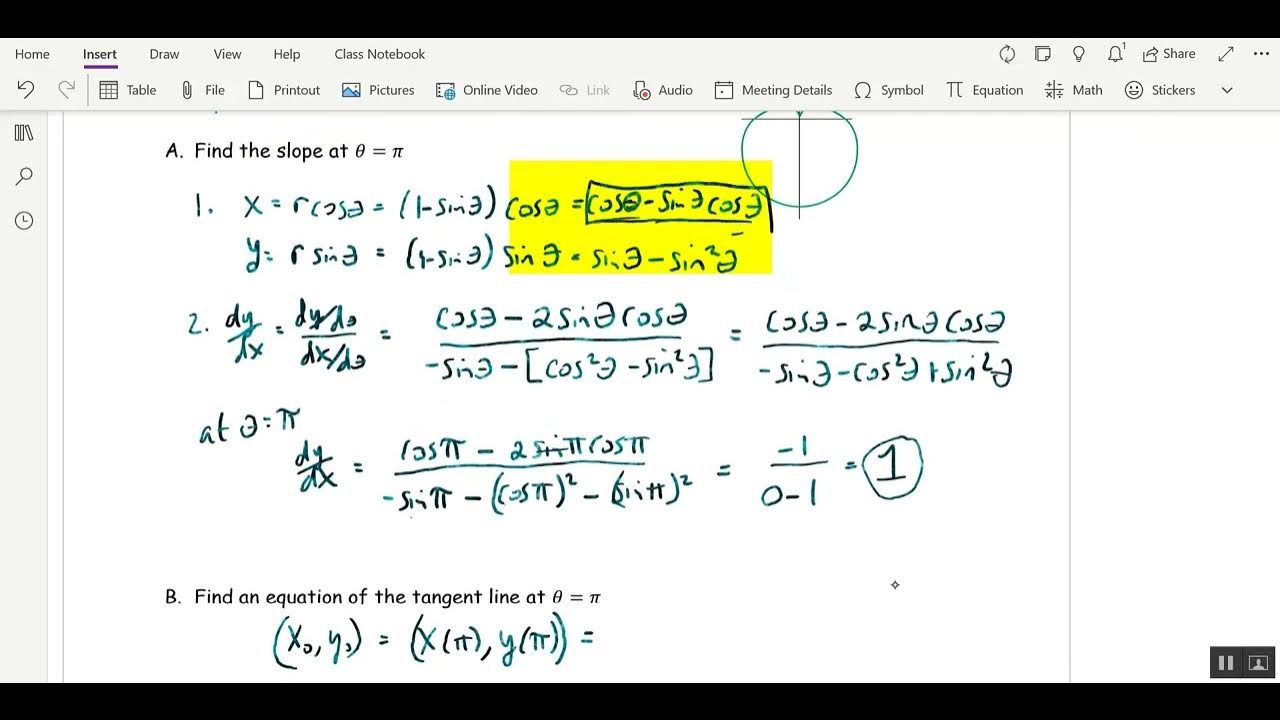 Home Insert Draw View Help Class Notebook 1 Share
Table File Printout Pictures Online Video Link Audio Meeting Details Symbol Equation Math Stickers
A. Find the slope at θ = π
1. x = r cosθ = (1-sinθ) cosθ = cosθ - sinθ cosθ
y = r sinθ = (1-sinθ) sinθ = sinθ - sin²θ
2. dy/dx = (dy/dθ)/(dx/dθ) = (cosθ - 2sinθ cosθ)/(-sinθ - [cos²θ - sin²θ]) = (cosθ - 2sinθ cosθ)/(-sinθ - cos²θ + sin²θ)
at θ = π
dy/dx = (cosπ - 2sinπ cosπ)/(-sinπ - (cosπ)² - (sinπ)²) = -1/(0-1) = 1
B. Find an equation of the tangent line at θ = π
(x₀, y₀) = (x(π), y(π)) =